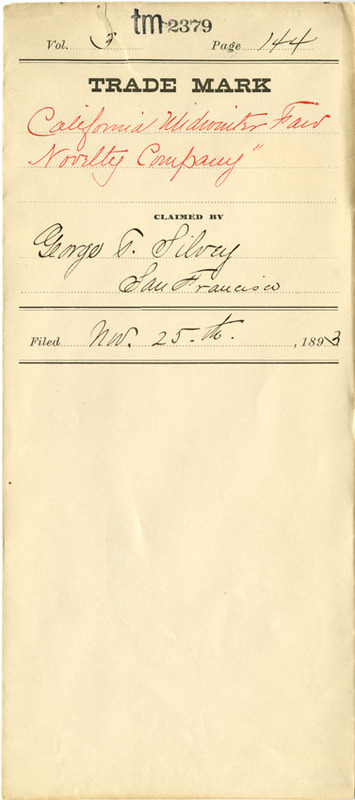 tm 2379
Vol. 3 Page 144
TRADE MARK
California Midwinter Fair
Novelty Company"
CLAIMED BY
George T. Silvey
San Francisco
Filed Nov. 25th. , 1893